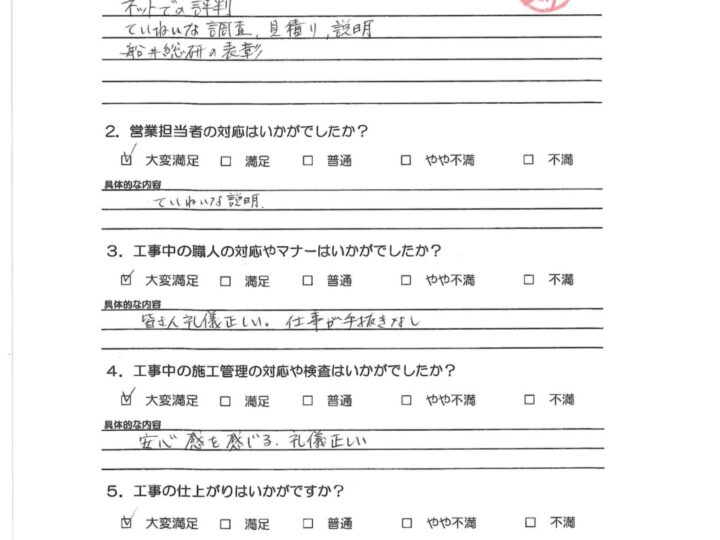 ネットでの評判
ていねいな調査、見積り、説明
船井総研の表彰
2．営業担当者の対応はいかがでしたか？
☑ 大変満足 □ 満足 □ 普通 □ やや不満 □ 不満
具体的な内容
ていねいな説明.
3．工事中の職人の対応やマナーはいかがでしたか？
☑ 大変満足 □ 満足 □ 普通 □ やや不満 □ 不満
具体的な内容
皆さん礼儀正しい。仕事が手抜きなし
4．工事中の施工管理の対応や検査はいかがでしたか？
☑ 大変満足 □ 満足 □ 普通 □ やや不満 □ 不満
具体的な内容
安心感を感じる. 礼儀正しい
5．工事の仕上がりはいかがですか？
☑ 大変満足 □ 満足 □ 普通 □ やや不満 □ 不満